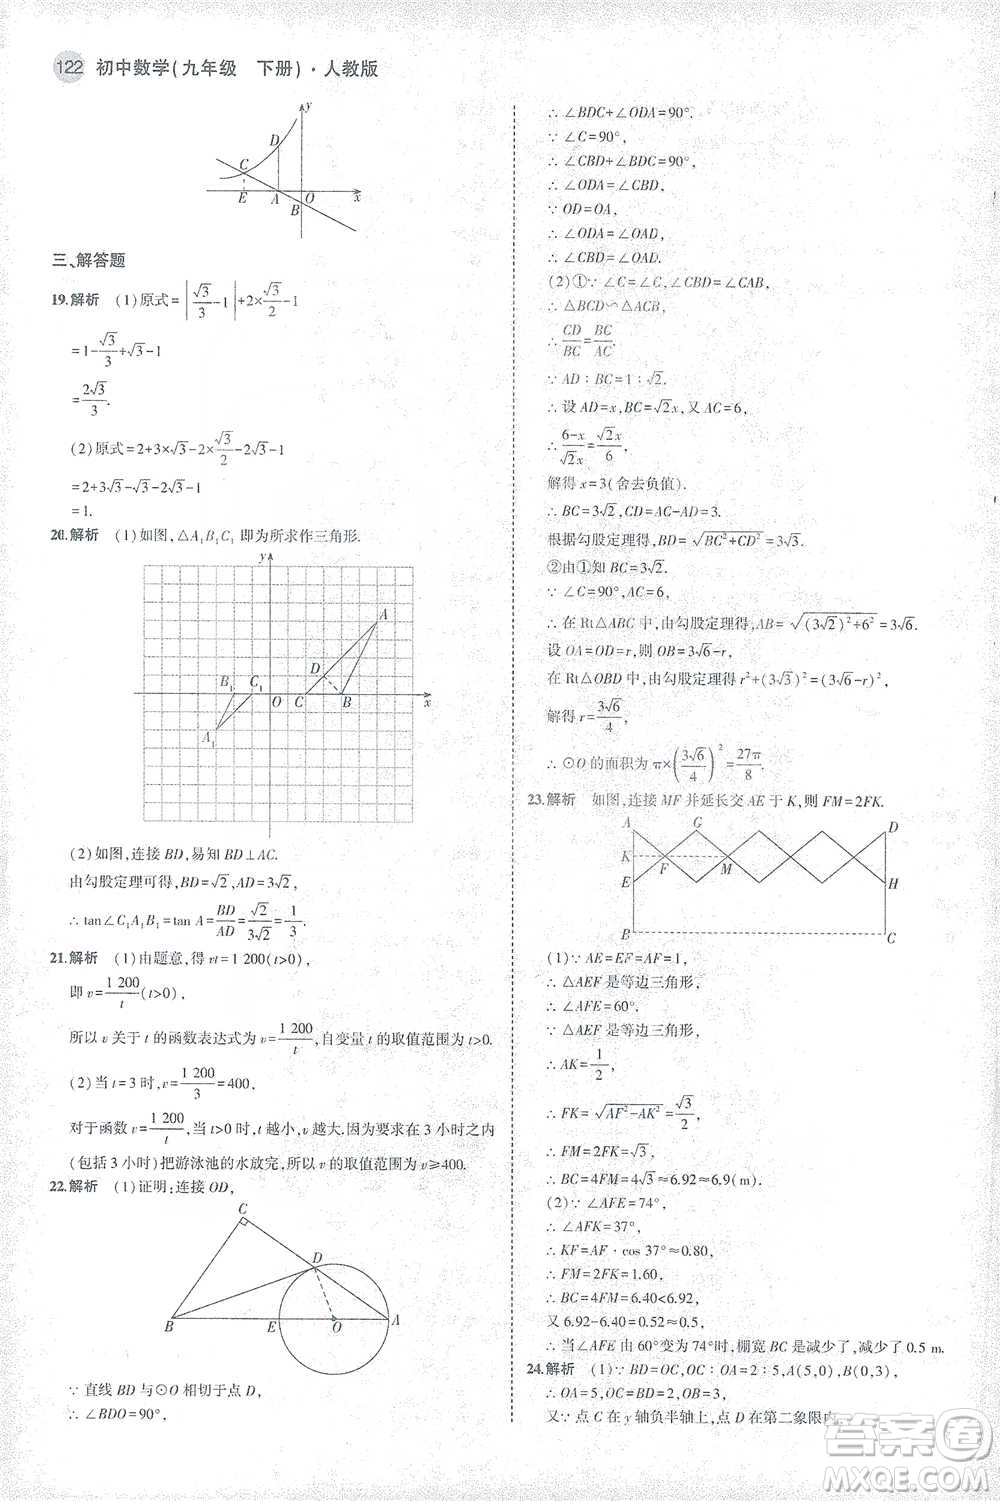 122 初中数学(九年级 下册)·人教版
y
D
C
E A O x
B
三、解答题
19.解析 (1)原式=|√3/3-1|+2×√3/2-1
=1-√3/3+√3-1
=2√3/3.
(2)原式=2+3×√3-2×√3/2-2√3-1
=2+3√3-√3-2√3-1
=1.
20.解析 (1)如图,△A₁B₁C₁ 即为所求作三角形.
y
A
D
B₁ C₁ O C B x
A₁
(2)如图,连接 BD,易知 BD⊥AC.
由勾股定理可得,BD=√2,AD=3√2,
∴ tan∠C₁A₁B₁=tan A=BD/AD=√2/3√2=1/3.
21.解析 (1)由题意,得 vt=1 200(t>0),
即 v=1 200/t(t>0),
所以 v 关于 t 的函数表达式为 v=1 200/t,自变量 t 的取值范围为 t>0.
(2)当 t=3 时,v=1 200/3=400,
对于函数 v=1 200/t,当 t>0 时,t 越小,v 越大.因为要求在 3 小时之内
(包括 3 小时)把游泳池的水放完,所以 v 的取值范围是 v≥400.
22.解析 (1)证明:连接 OD,
C
D
B E O A
∵ 直线 BD 与⊙O 相切于点 D,
∴ ∠BDO=90°,
∴ ∠BDC+∠ODA=90°.
∵ ∠C=90°,
∴ ∠CBD+∠BDC=90°,
∴ ∠ODA=∠CBD,
∵ OD=OA,
∴ ∠ODA=∠OAD,
∴ ∠CBD=∠OAD.
(2)①∵ ∠C=∠C,∠CBD=∠CAB,
∴ △BCD∽△ACB,
∴ CD/BC=BC/AC.
∵ AD∶BC=1∶√2.
∴ 设 AD=x,BC=√2x,又 AC=6,
∴ 6-x/√2x=√2x/6,
解得 x=3(舍去负值).
∴ BC=3√2,CD=AC-AD=3.
根据勾股定理得,BD=√BC²+CD²=3√3.
②由①知 BC=3√2,
∵ ∠C=90°,AC=6,
∴ 在 Rt△ABC 中,由勾股定理得,AB=√(3√2)²+6²=3√6.
设 OA=OD=r,则 OB=3√6-r,
在 Rt△OBD 中,由勾股定理得 r²+(3√3)²=(3√6-r)²,
解得 r=3√6/4,
∴ ⊙O 的面积为 π×(3√6/4)²=27π/8.
23.解析 如图,连接 MF 并延长交 AE 于 K,则 FM=2FK.
A G D
K F M
E H
B C
(1)∵ AE=EF=AF=1,
∴ △AEF 是等边三角形,
∴ ∠AFE=60°.
∵ △AEF 是等边三角形,
∴ AK=1/2,
∴ FK=√AF²-AK²=√3/2,
∴ FM=2FK=√3,
∴ BC=4FM=4√3≈6.92≈6.9(m).
(2)∵ ∠AFE=74°,
∴ ∠AFK=37°,
∴ KF=AF·cos 37°≈0.80,
∴ FM=2FK=1.60,
∴ BC=4FM=6.40<6.92,
又 6.92-6.40=0.52≈0.5,
∴ 当∠AFE 由 60°变为 74°时,棚宽 BC 是减少了,减少了 0.5 m.
24.解析 (1)∵ BD=OC,OC∶OA=2∶5,A(5,0),B(0,3),
∴ OA=5,OC=BD=2,OB=3,
又∵ 点 C 在 y 轴负半轴上,点 D 在第二象限内,
答案圈
MXQE.COM